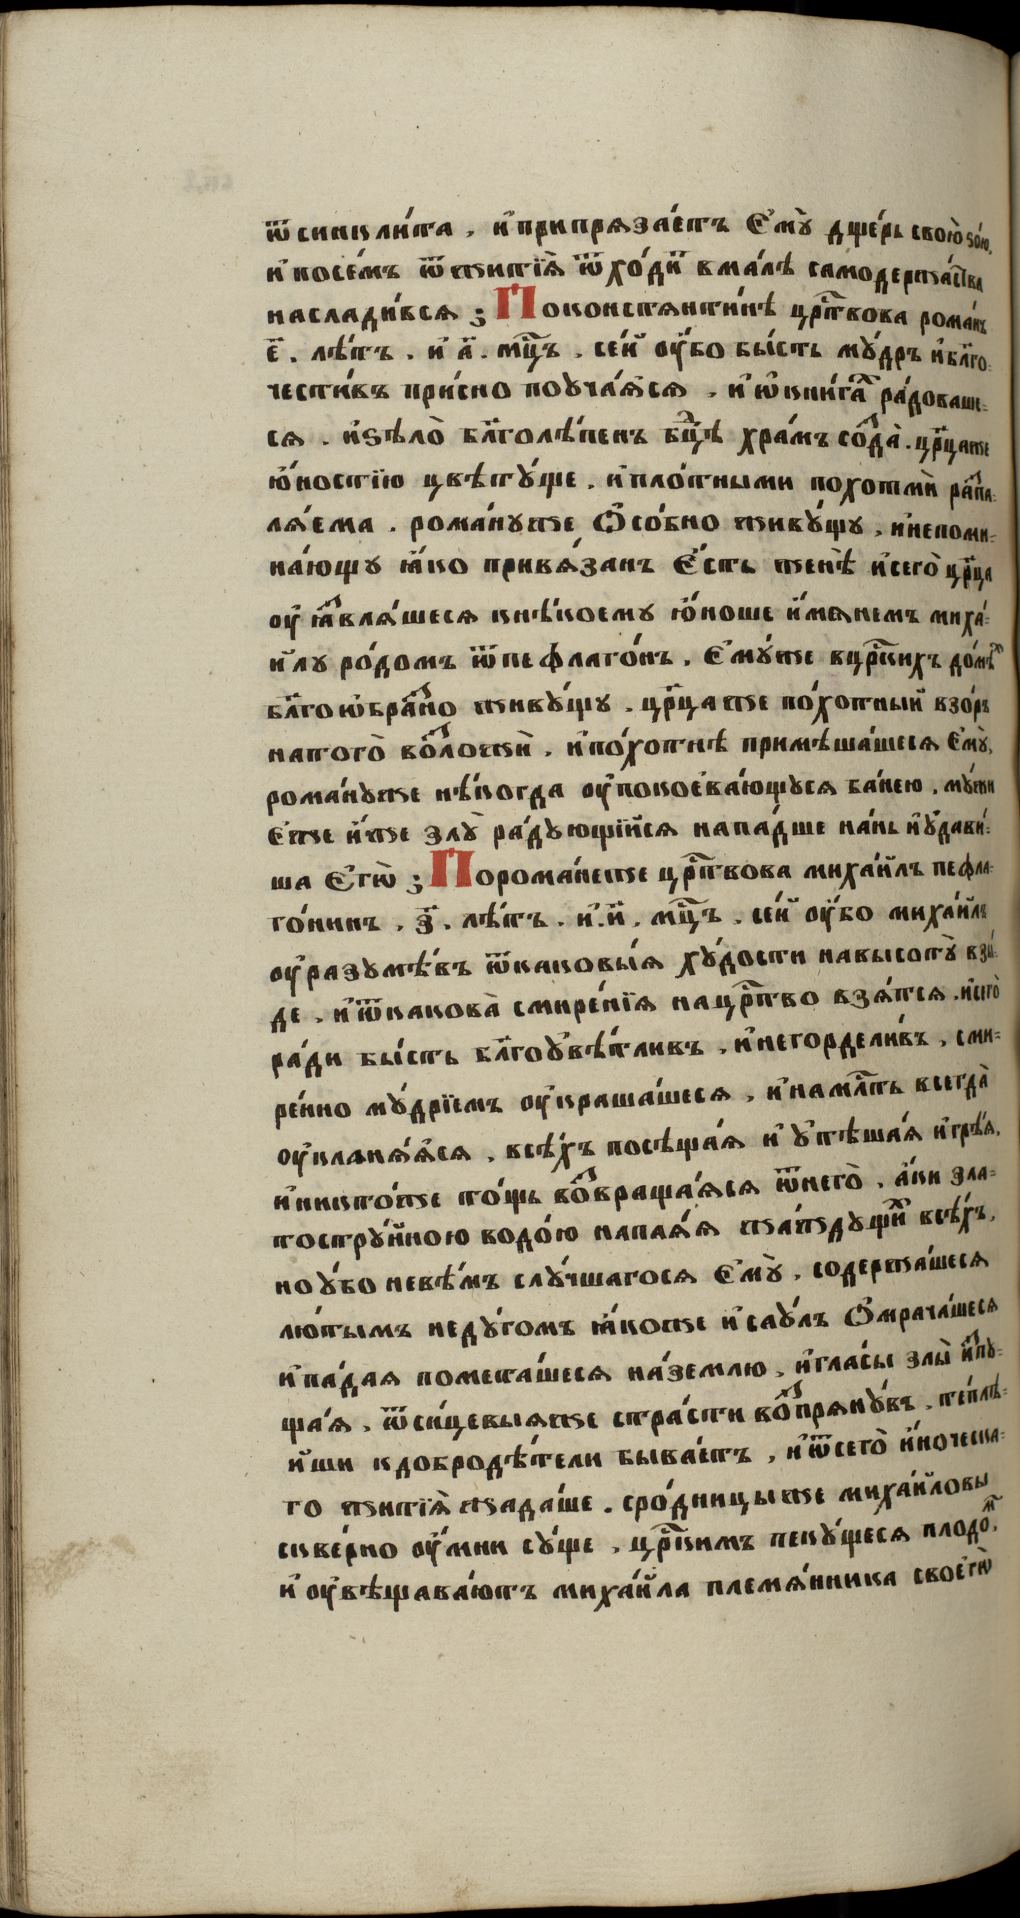 ѿ синкли́та , и҆ припрѧза́етъ є҆мꙋ̀ дще́рь свою̀ зо́ю,
и҆ посе́мъ ѿ житїѧ̀ ѿхо́дѝ в ма́лѣ самодержа́ства
наслади́всѧ ; Поконстѧнти́нѣ црⷭ҇твова рома́нъ
є҃ . лѣ́тъ . и҆ а҃ . мцⷭ҇ъ . се́й ᲂу҆́бо бы́сть мꙋ́дръ и҆ бл҃го-
чести́въ при́сно поуча́ѧсѧ , и҆ ѡ҆ кни́гаⷯ ра́довашe-
сѧ . и҆ ѕѣлѡ̀ бл҃голѣ́пенъ бцⷣѣ хра́мъ соⷥда̀ . цр҃ца же
ю҆́ностїю цвѣтꙋ́ще , и҆ пло́тными похотмѝ раⷥпа-
лѧ́ема . рома́нꙋже ѻ҆со́бно живꙋ́щꙋ , и҆ непоми-
на́ющꙋ ꙗ҆́ко привѧ́занъ є҆́сть женѣ̀ и҆ сегѡ̀ цр҃ца
ᲂу҆ ꙗ҆ⷥвлѧ́шесѧ к нѣ́коемꙋ ю҆́ноше и҆́мѧнемъ миха́-
и҆лꙋ ро́домъ ѿ пефлаго́нъ . є҆мꙋ́же в црⷭ҇кихъ до́мѣⷯ
бл҃гоѡ҆браⷥно живꙋ́щꙋ . цр҃ца же по́хотный взо́ръ
на того̀ воⷥложѝ , и҆ по́хотнѣ примѣша́шесѧ є҆мꙋ̀,
рома́нꙋже нѣ́когда ᲂу҆покоева́ющꙋсѧ ба́нею , мꙋ́жи
є҆же и҆́же злꙋ̀ ра́дꙋющїйсѧ напа́дше на́нь и҆ ᲂу҆дави́-
ша є҆гѡ̀ ; По рома́неже црⷭ҇твова миха́илъ пефла-
го́нинъ . з҃ . лѣ́тъ . и҆ . и҃ . мцⷭ҇ъ . се́й ᲂу҆́бо миха́илъ
ᲂу҆разꙋмѣ́въ ѿ каковы́ѧ хꙋ́дости на высотꙋ̀ взы́-
де , и҆ ѿ какова̀ смире́нїѧ на црⷭ҇тво взѧ́тсѧ . и҆ сегѡ̀
ра́ди бы́сть бл҃гоувѣ́тливъ , и҆ не горделѝвъ , сми-
ре́нно мꙋ́дрїемъ ᲂу҆краша́шесѧ , и҆ на млⷭ҇ть всегда̀
ᲂу҆клѧнѧ́ѧсѧ , всѣ́хъ посѣща́ѧ и҆ ᲂу҆тѣша́ѧ и҆ грѣ́ѧ,
и҆ никто́же то́щь воⷥвраща́ѧсѧ ѿ негѡ̀ , а҆́ки зла-
тострꙋ́йною водо́ю напаѧ́ѧ жа́ждꙋщиⷯ всѣ́хъ,
но ᲂу҆́бо невѣ́мъ слꙋ́чшагосѧ є҆мꙋ̀ , содержа́шесѧ
лю́тымъ недꙋ́гомъ ꙗ҆́коже и҆ саꙋ́лъ ѻ҆мрача́шесѧ
и҆ па́даѧ пометáшесѧ на́землю , и҆ гла́сы злы̀ и҆ⷥпꙋ-
ща́ѧ , ѿ си́цевыѧже стра́сти воⷥпрѧнꙋ́въ , теплѣ́-
и҆ши к добродѣ́тели быва́етъ , и҆ ѿ сегѡ̀ и҆́ноческа-
го житїѧ̀ жада́ше . сро́дницыже миха́иловы
скве́рно ᲂу҆́мни сꙋ́ще , црⷭ҇кимъ пекꙋ́щесѧ плодоⷨ,
и҆ ᲂу҆вѣщава́ютъ миха́ила племѧ́нника своегѡ̀